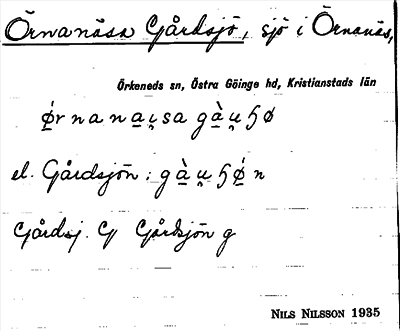 Örnanäsa Gårdsjö, sjö i Örnanäs,
Örkeneds sn, Östra Göinge hd, Kristianstads län
ǿr na na̲u̯sa gà̲u̯ɧø
el. Gårdsjön: gà̲u̯ɧǿ̲n
Gårdsj. G Gårdsjön g
NILS NILSSON 1935